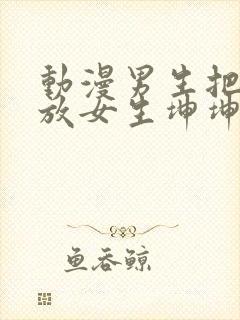 動漫男生把
放女生坤坤
鱼吞鲸